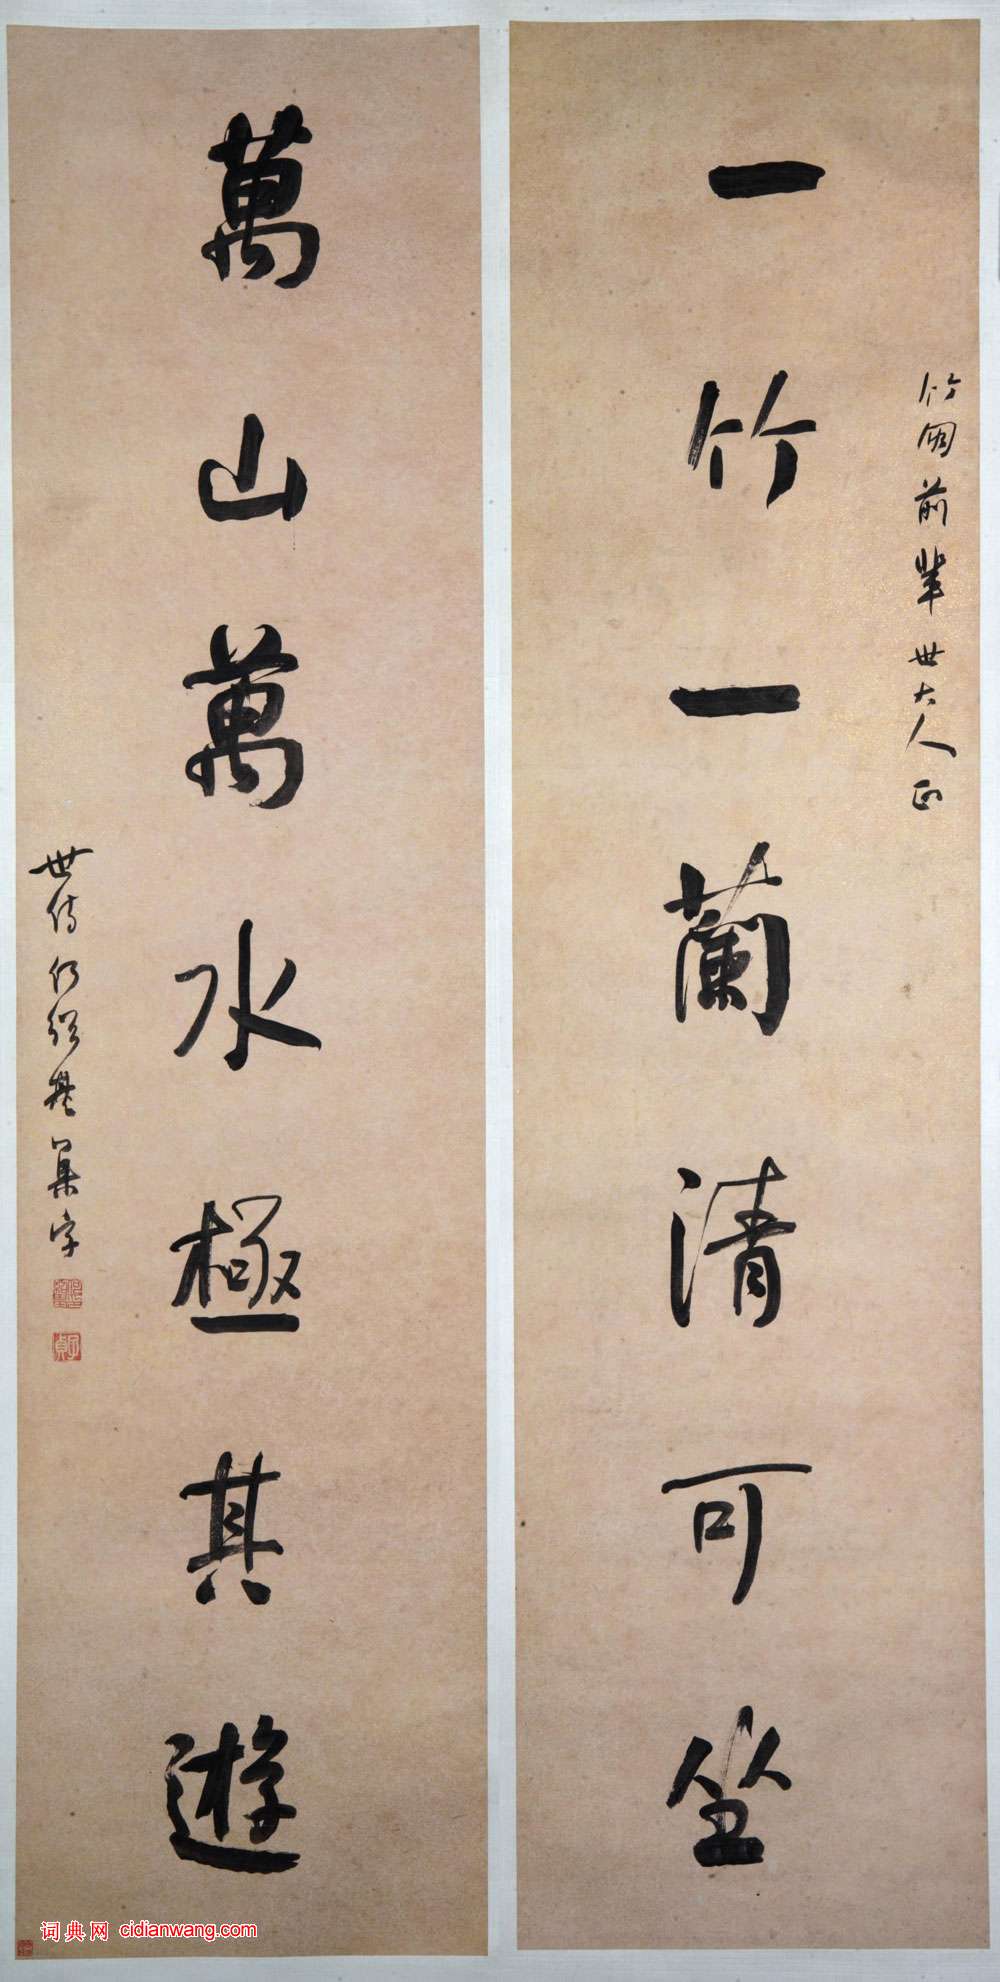 竹朋前輩世大人正
一竹一蘭清可坐
萬山萬水極其遊
世侍何紹基集字
子貞
词典网 cidianwang.com